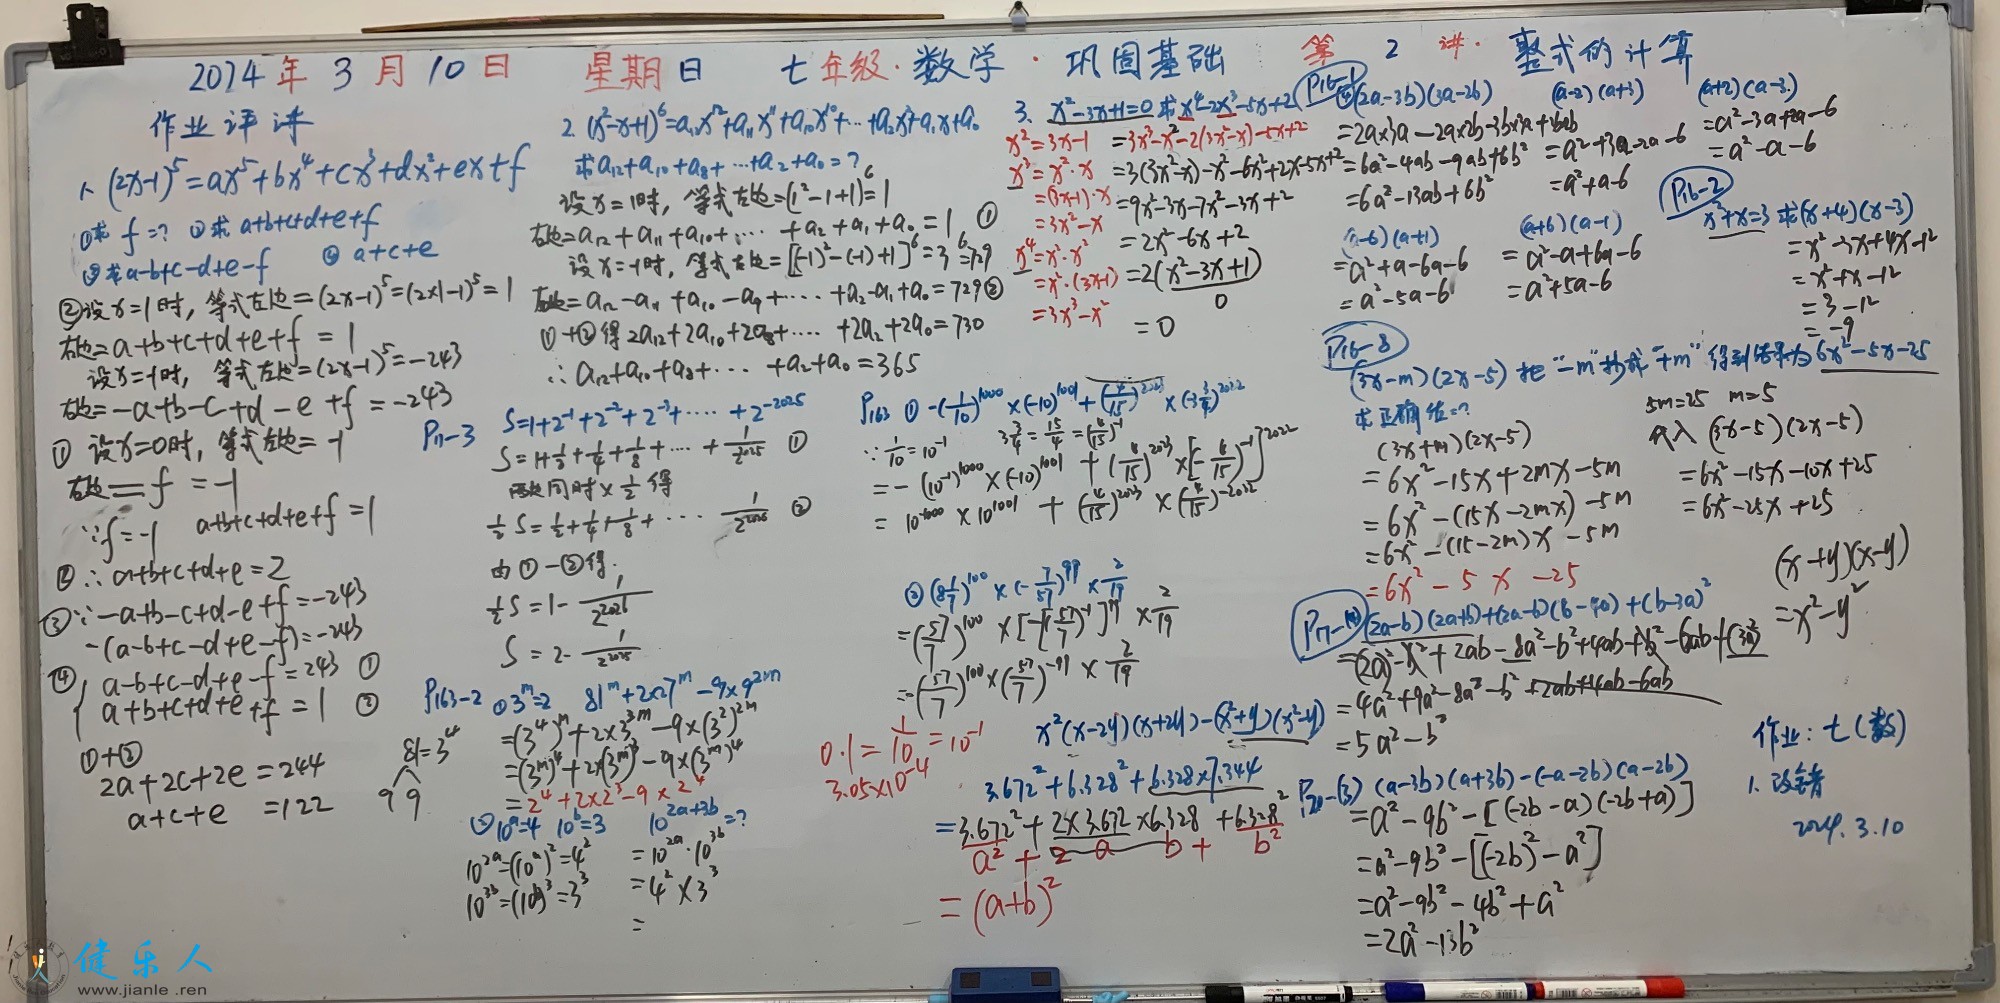 2024年3月10日 星期日 七年级·数学·巩固基础 第2讲·整式的计算
作业评讲
1. (2x-1)⁵=ax⁵+bx⁴+cx³+dx²+ex+f
①求 f=? ②求 a+b+c+d+e+f
③求a-b+c-d+e-f ④ a+c+e
②设x=1时, 等式左边=(2x-1)⁵=(2×1-1)⁵=1
右边=a+b+c+d+e+f=1
设x=-1时, 等式左边=(2x-1)⁵=-243
右边=-a+b-c+d-e+f=-243
① 设x=0时, 等式左边=-1
右边=f=-1
∵f=-1 a+b+c+d+e+f=1
② ∴a+b+c+d+e=2
③∵-a+b-c+d-e+f=-243
-(a-b+c-d+e-f)=-243
④ a-b+c-d+e-f=243 ①
a+b+c+d+e+f=1 ②
①+②
2a+2c+2e=244
a+c+e=122
2. (x²-x+1)⁶=a₁₂x¹²+a₁₁x¹¹+a₁₀x¹⁰+…+a₂x²+a₁x+a₀
求a₁₂+a₁₀+a₈+…+a₂+a₀=?
设x=1时, 等式左边=(1²-1+1)⁶=1
右边=a₁₂+a₁₁+a₁₀+…+a₂+a₁+a₀=1 ①
设x=-1时, 等式左边=[(-1)²-(-1)+1]⁶=3⁶=729
右边=a₁₂-a₁₁+a₁₀-a₉+…+a₂-a₁+a₀=729②
①+②得2a₁₂+2a₁₀+2a₈+…+2a₂+2a₀=730
∴a₁₂+a₁₀+a₈+…+a₂+a₀=365
P₁₇-3 S=1+2⁻¹+2⁻²+2⁻³+…+2⁻²⁰²⁵
S=1+1/2+1/4+1/8+…+1/2²⁰²⁵ ①
两边同时×1/2得
1/2S=1/2+1/4+1/8+…1/2²⁰²⁶ ②
由①-②得.
1/2S=1-1/2²⁰²⁶
S=2-1/2²⁰²⁵
P₁₆₃-2 ①3ᵐ=2 81ᵐ+2×27ᵐ-9×9²ᵐ
=(3⁴)ᵐ+2×3³ᵐ-9×(3²)²ᵐ
=(3ᵐ)⁴+2×(3ᵐ)³-9×(3ᵐ)⁴
=2⁴+2×2³-9×2⁴
81=3⁴
9 9
②10ᵃ=4 10ᵇ=3 10²ᵃ⁺³ᵇ=?
10²ᵃ=(10ᵃ)²=4² =10²ᵃ·10³ᵇ
10³ᵇ=(10ᵇ)³=3³ =4²×3³
=
3. x²-3x+1=0 求x⁴-2x³-5x+2
x²=3x-1 =3x³-x²-2(3x²-x)-5x+2
x³=x²·x =3(3x²-x)-x²-6x²+2x-5x+2
=(3x-1)·x =9x²-3x-7x²-3x+2
=3x²-x =2x²-6x+2
x⁴=x²·x² =2(x²-3x+1)
=x²·(3x-1) 0
=3x³-x² =0
P₁₆₃ ①-(1/10)¹⁰⁰⁰×(-10)¹⁰⁰¹+(4/15)²⁰²³×(-3 3/4)²⁰²²
∵1/10=10⁻¹ 3 3/4=15/4=(4/15)⁻¹
=-(10⁻¹)¹⁰⁰⁰×(-10)¹⁰⁰¹+(4/15)²⁰²³×[-(4/15)⁻¹]²⁰²²
=10⁻¹⁰⁰⁰×10¹⁰⁰¹+(4/15)²⁰²³×(4/15)⁻²⁰²²
②(8 1/7)¹⁰⁰×(-7/57)⁹⁹×2/19
=(57/7)¹⁰⁰×[-(57/7)⁻¹]⁹⁹×2/19
=(57/7)¹⁰⁰×(57/7)⁻⁹⁹×2/19
0.1=1/10=10⁻¹
3.05×10⁻⁴
x²(x-2y)(x+2y)-(x²+y)(x²-y)
3.672²+6.328²+6.328×7.344
=3.672²+2×3.672×6.328+6.328²
a²+2 a b+b²
=(a+b)²
P₁₆-1 (2a-3b)(3a-2b)
=2a×3a-2a×2b-3b×3a+6bb
=6a²-4ab-9ab+6b²
=6a²-13ab+6b²
(a-2)(a+3)
=a²+3a-2a-6
=a²+a-6
(a+2)(a-3)
=a²-3a+2a-6
=a²-a-6
(a-6)(a+1)
=a²+a-6a-6
=a²-5a-6
(a+6)(a-1)
=a²-a+6a-6
=a²+5a-6
P₁₆-2
x²+x=3 求(x+4)(x-3)
=x²-3x+4x-12
=x²+x-12
=3-12
=-9
P₁₆-8
(3x-m)(2x-5) 把“-m”抄成“+m”得到结果为6x²-5x-25
求正确值=?
(3x+m)(2x-5)
=6x²-15x+2mx-5m
=6x²-(15x-2mx)-5m
=6x²-(15-2m)x-5m
=6x²-5x-25
5m=25 m=5
代入(3x-5)(2x-5)
=6x²-15x-10x+25
=6x²-25x+25
(x+y)(x-y)
=x²-y²
(2a-b)(2a+b)+(2a-b)(b-4a)+(b-3a)²
=(2a)²-b²+2ab-8a²-b²+4ab+b²-6ab+(3a)²
=4a²+9a²-8a²-b²+2ab+4ab-6ab
=5a²-b²
P₂₀-(3) (a-3b)(a+3b)-(-a-2b)(a-2b)
=a²-9b²-[(-2b-a)(-2b+a)]
=a²-9b²-[(-2b)²-a²]
=a²-9b²-4b²+a²
=2a²-13b²
作业: 七(数)
1. 改错
2024.3.10
健乐人
www.jianle.ren